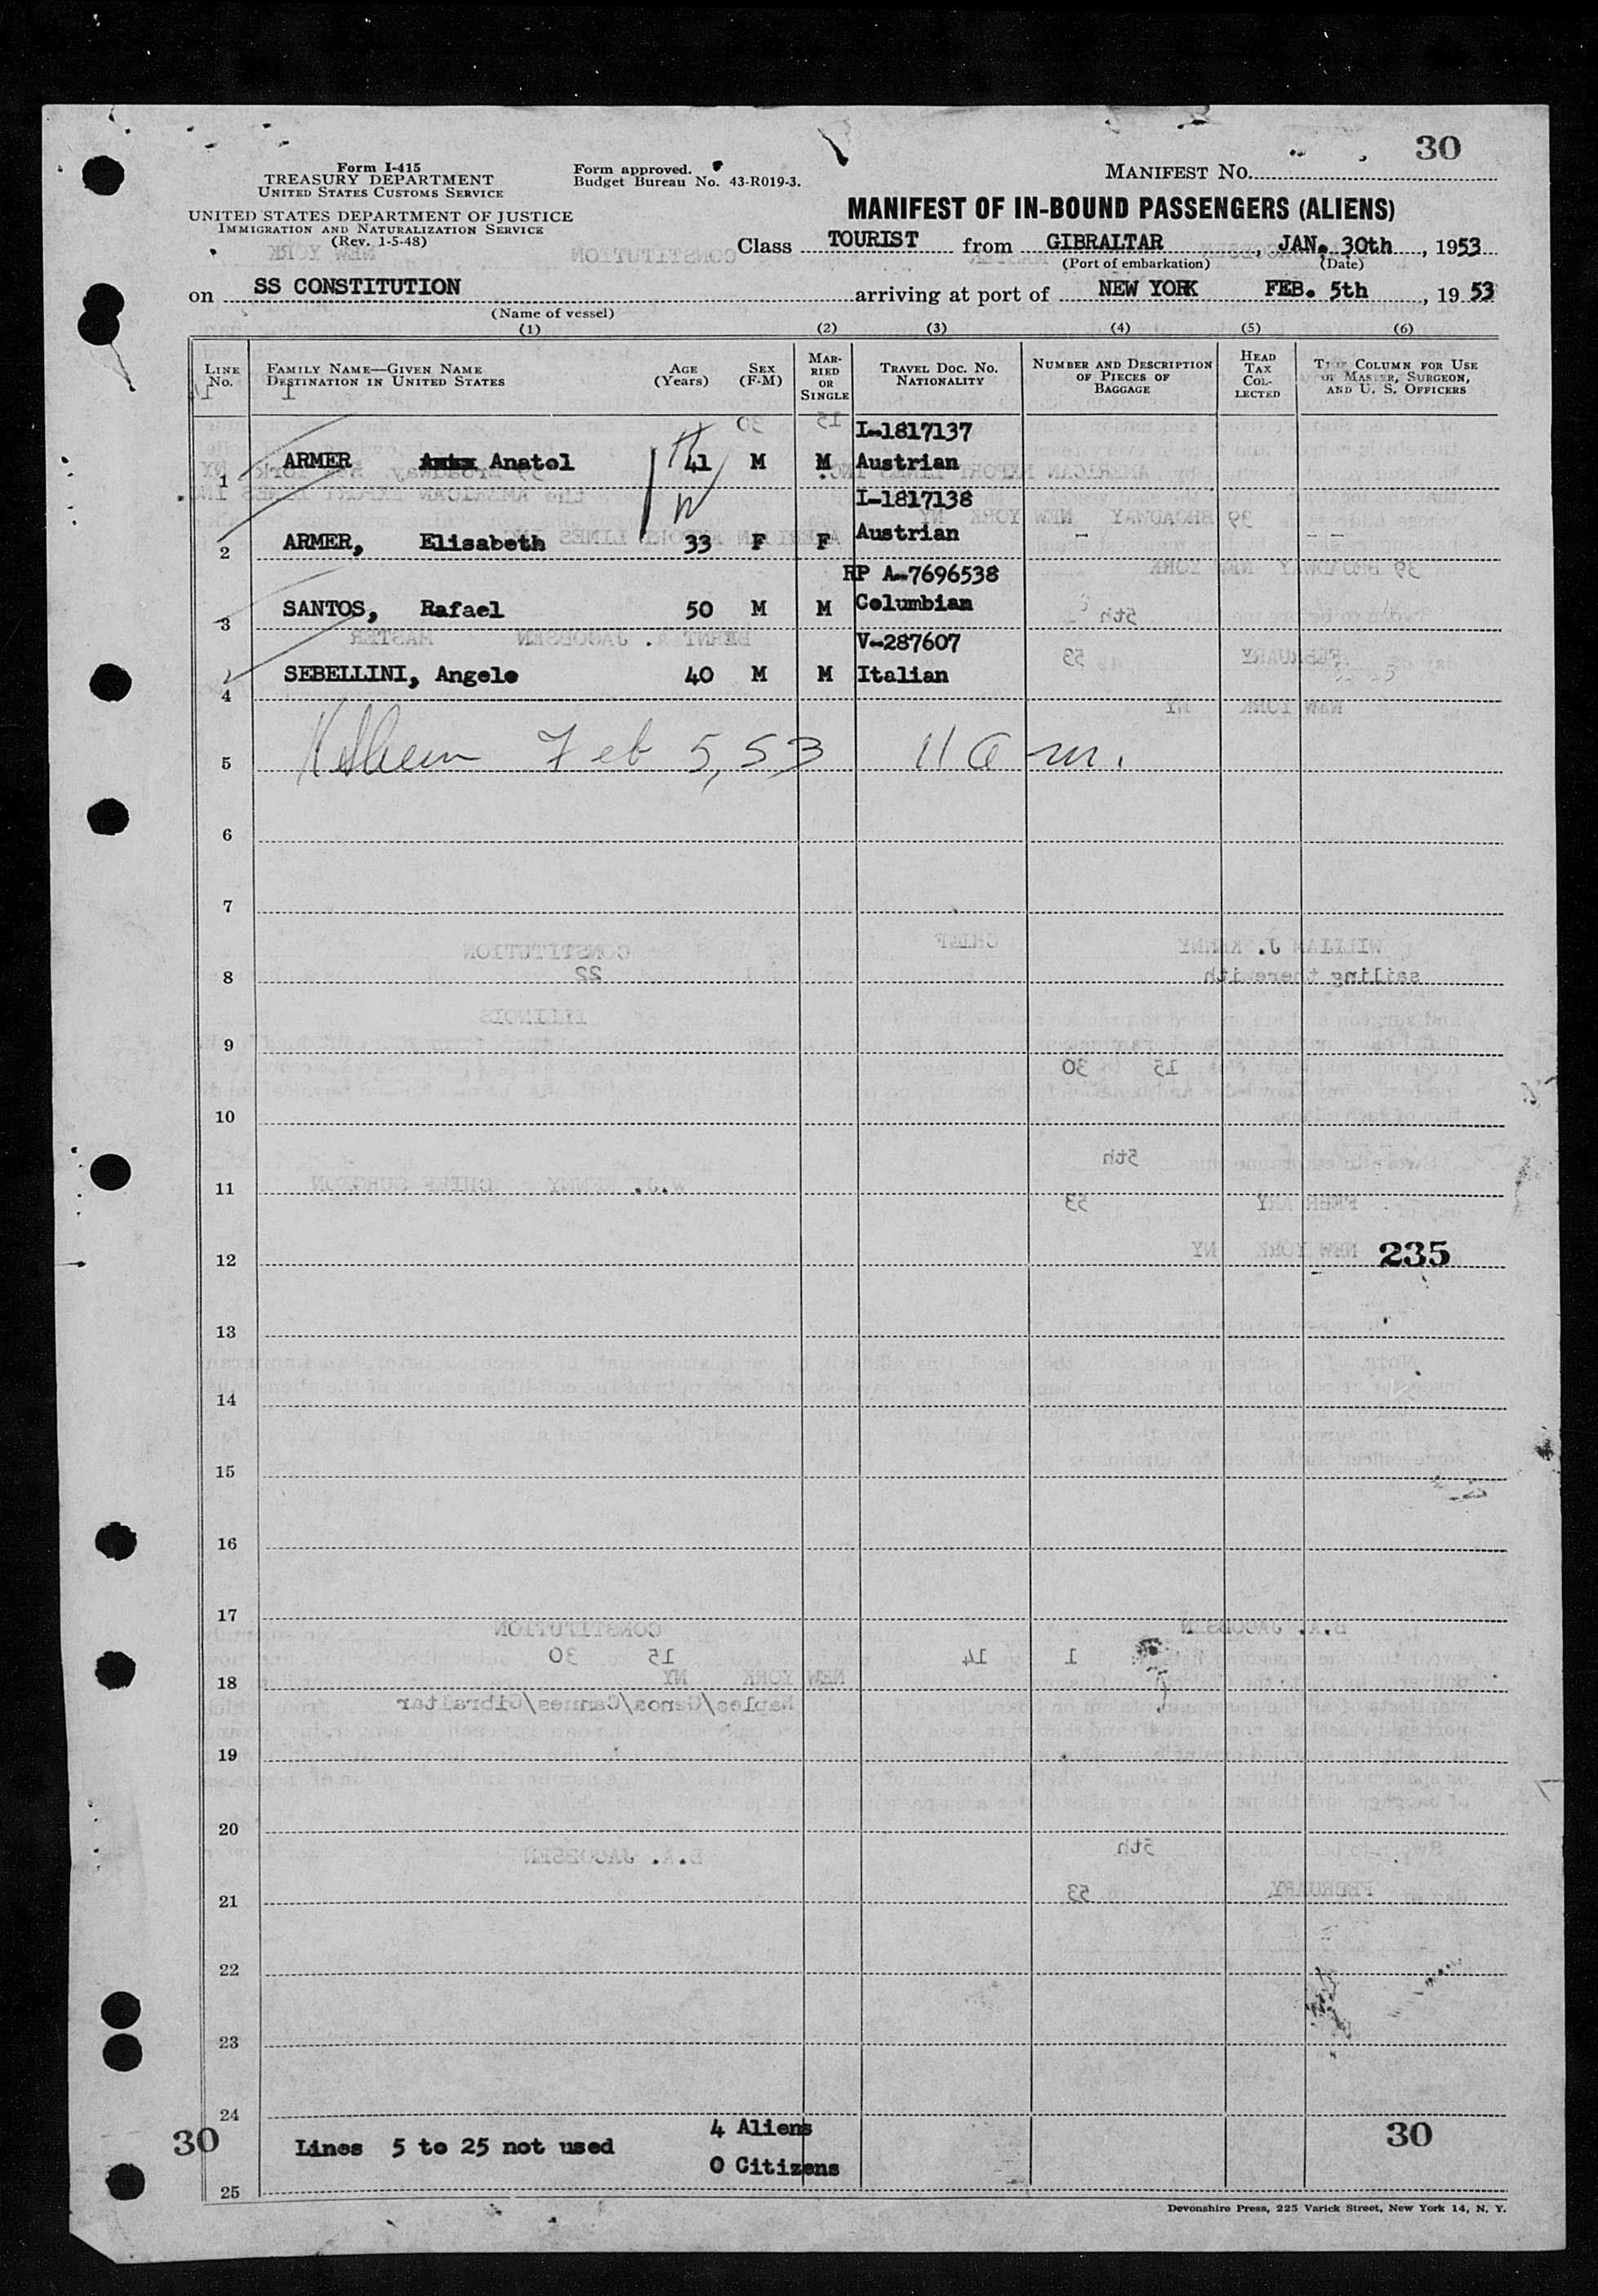 30
Form I-415
TREASURY DEPARTMENT
UNITED STATES CUSTOMS SERVICE
UNITED STATES DEPARTMENT OF JUSTICE
IMMIGRATION AND NATURALIZATION SERVICE
(Rev. 1-5-48)
Form approved.
Budget Bureau No. 43-R019-3.
MANIFEST NO.
MANIFEST OF IN-BOUND PASSENGERS (ALIENS)
Class TOURIST from GIBRALTAR, JAN. 30th, 1953
(Port of embarkation) (Date)
on SS CONSTITUTION arriving at port of NEW YORK FEB. 5th, 1953
(Name of vessel)
(1) (2) (3) (4) (5) (6)
LINE NO. FAMILY NAME—GIVEN NAME DESTINATION IN UNITED STATES AGE (YEARS) SEX (F-M) MARRIED OR SINGLE TRAVEL DOC. NO. NATIONALITY NUMBER AND DESCRIPTION OF PIECES OF BAGGAGE HEAD TAX COLLECTED THIS COLUMN FOR USE OF MASTER, SURGEON, AND U. S. OFFICERS
I-1817137
1 ARMER Anatol 41 M M Austrian
I-1817138
2 ARMER, Elisabeth 33 F F Austrian
RP A-7696538
3 SANTOS, Rafael 50 M M Columbian
V-287607
4 SEBELLINI, Angelo 40 M M Italian
5 Feb 5, 53 11 a m.
6
7
8
9
10
11
12 235
13
14
15
16
17
18
19
20
21
22
23
24
4 Aliens
30 Lines 5 to 25 not used 30
0 Citizens
25
Devonshire Press, 225 Varick Street, New York 14, N. Y.